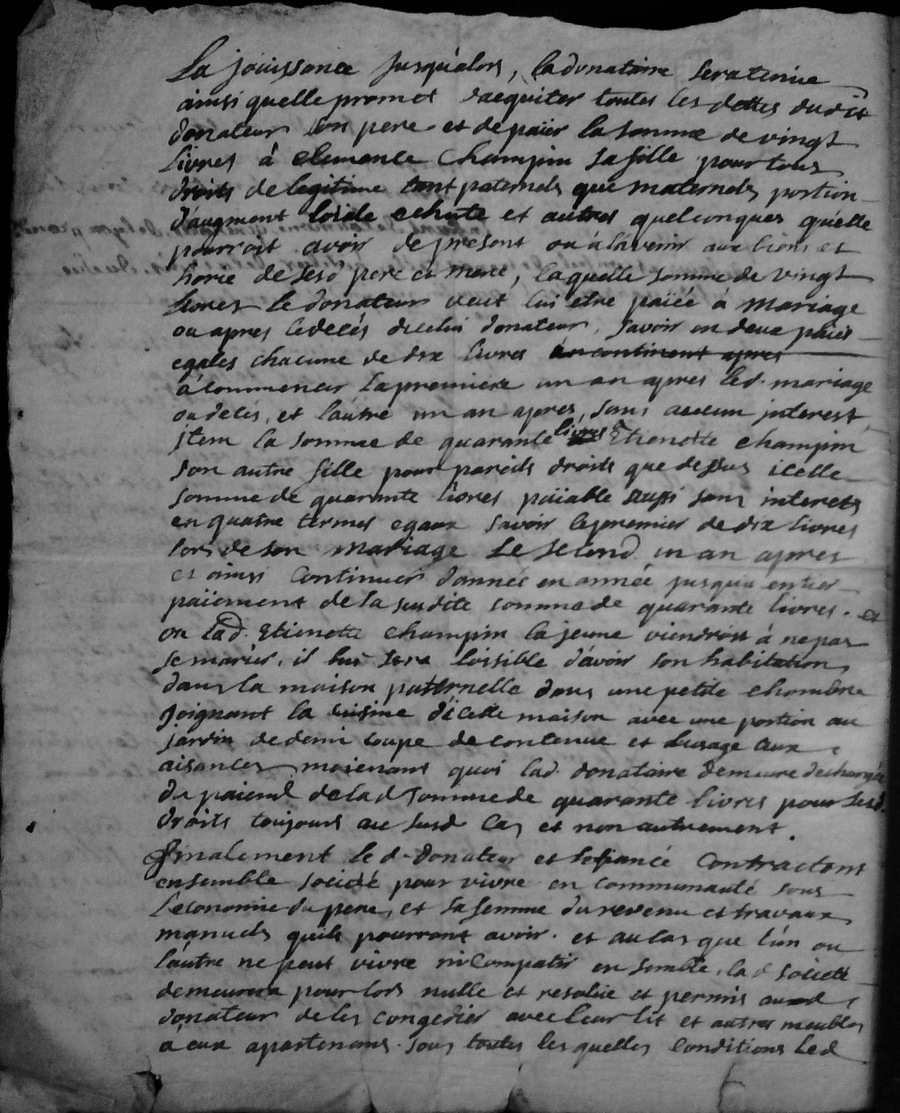 La jouissance jusqu'alors, la donataire sera tenue
ainsi quelle promet d'acquiter toutes les dettes dudit
donateur son pere et de païer la somme de vingt
livres à clemence Champin sa fille pour tous
droits de legitime tant paternels que maternels, portion
d'augment loide echute et autres quelconques qu'elle
pourroit avoir de present ou à l'avenir aux biens et
horie de sesd pere et mere, laquelle somme de vingt
livres le donateur veut lui être païée a mariage
ou apres le decés dicelui donateur, savoir en deux païes
egales chacune de dix livres incontinent apres
à commencer la premiere un an apres led. mariage
ou decés, et l'autre un an apres, sans aucun interest
jtem la somme de quarante livres Etienette champin
son autre fille pour pareils droits que dessus icelle
somme de quarante livres païable aussi sans interets
en quatre termes egaux savoir le premier de dix livres
lors de son mariage le second un an apres
et ainsi continuer d'année en année jusqu'a entier
païement de la susdite somme de quarante livres. et
ou lad. Etienette champin la jeune viendroit à ne pas
se marier, il lui sera loisible d'avoir son habitation
dans la maison paternelle dans une petite chambre
joignant la cuisine d'icelle maison avec une portion au
jardin de demi coupe de contenue et l'usage aux
aisances, moienant quoi lad. donataire demeure dechargée
du païemt de lad somme de quarante livres pour sesd.
droits toujours au susd cas et non autrement.
finalement led. donateur et le fiancé contractons
ensemble societé pour vivre en communauté sous
l'economie du pere, et sa femme du revenu et travaux
manuels quils pourront avoir. et au cas que l'un ou
l'autre ne peut vivre ni compatir ensemble, lad societé
demeurera pour lors nulle et resolüe et permis aud
donateur de les congedier avec leur lit et autres meubles
a eux apartenans. sous toutes lesquelles conditions led